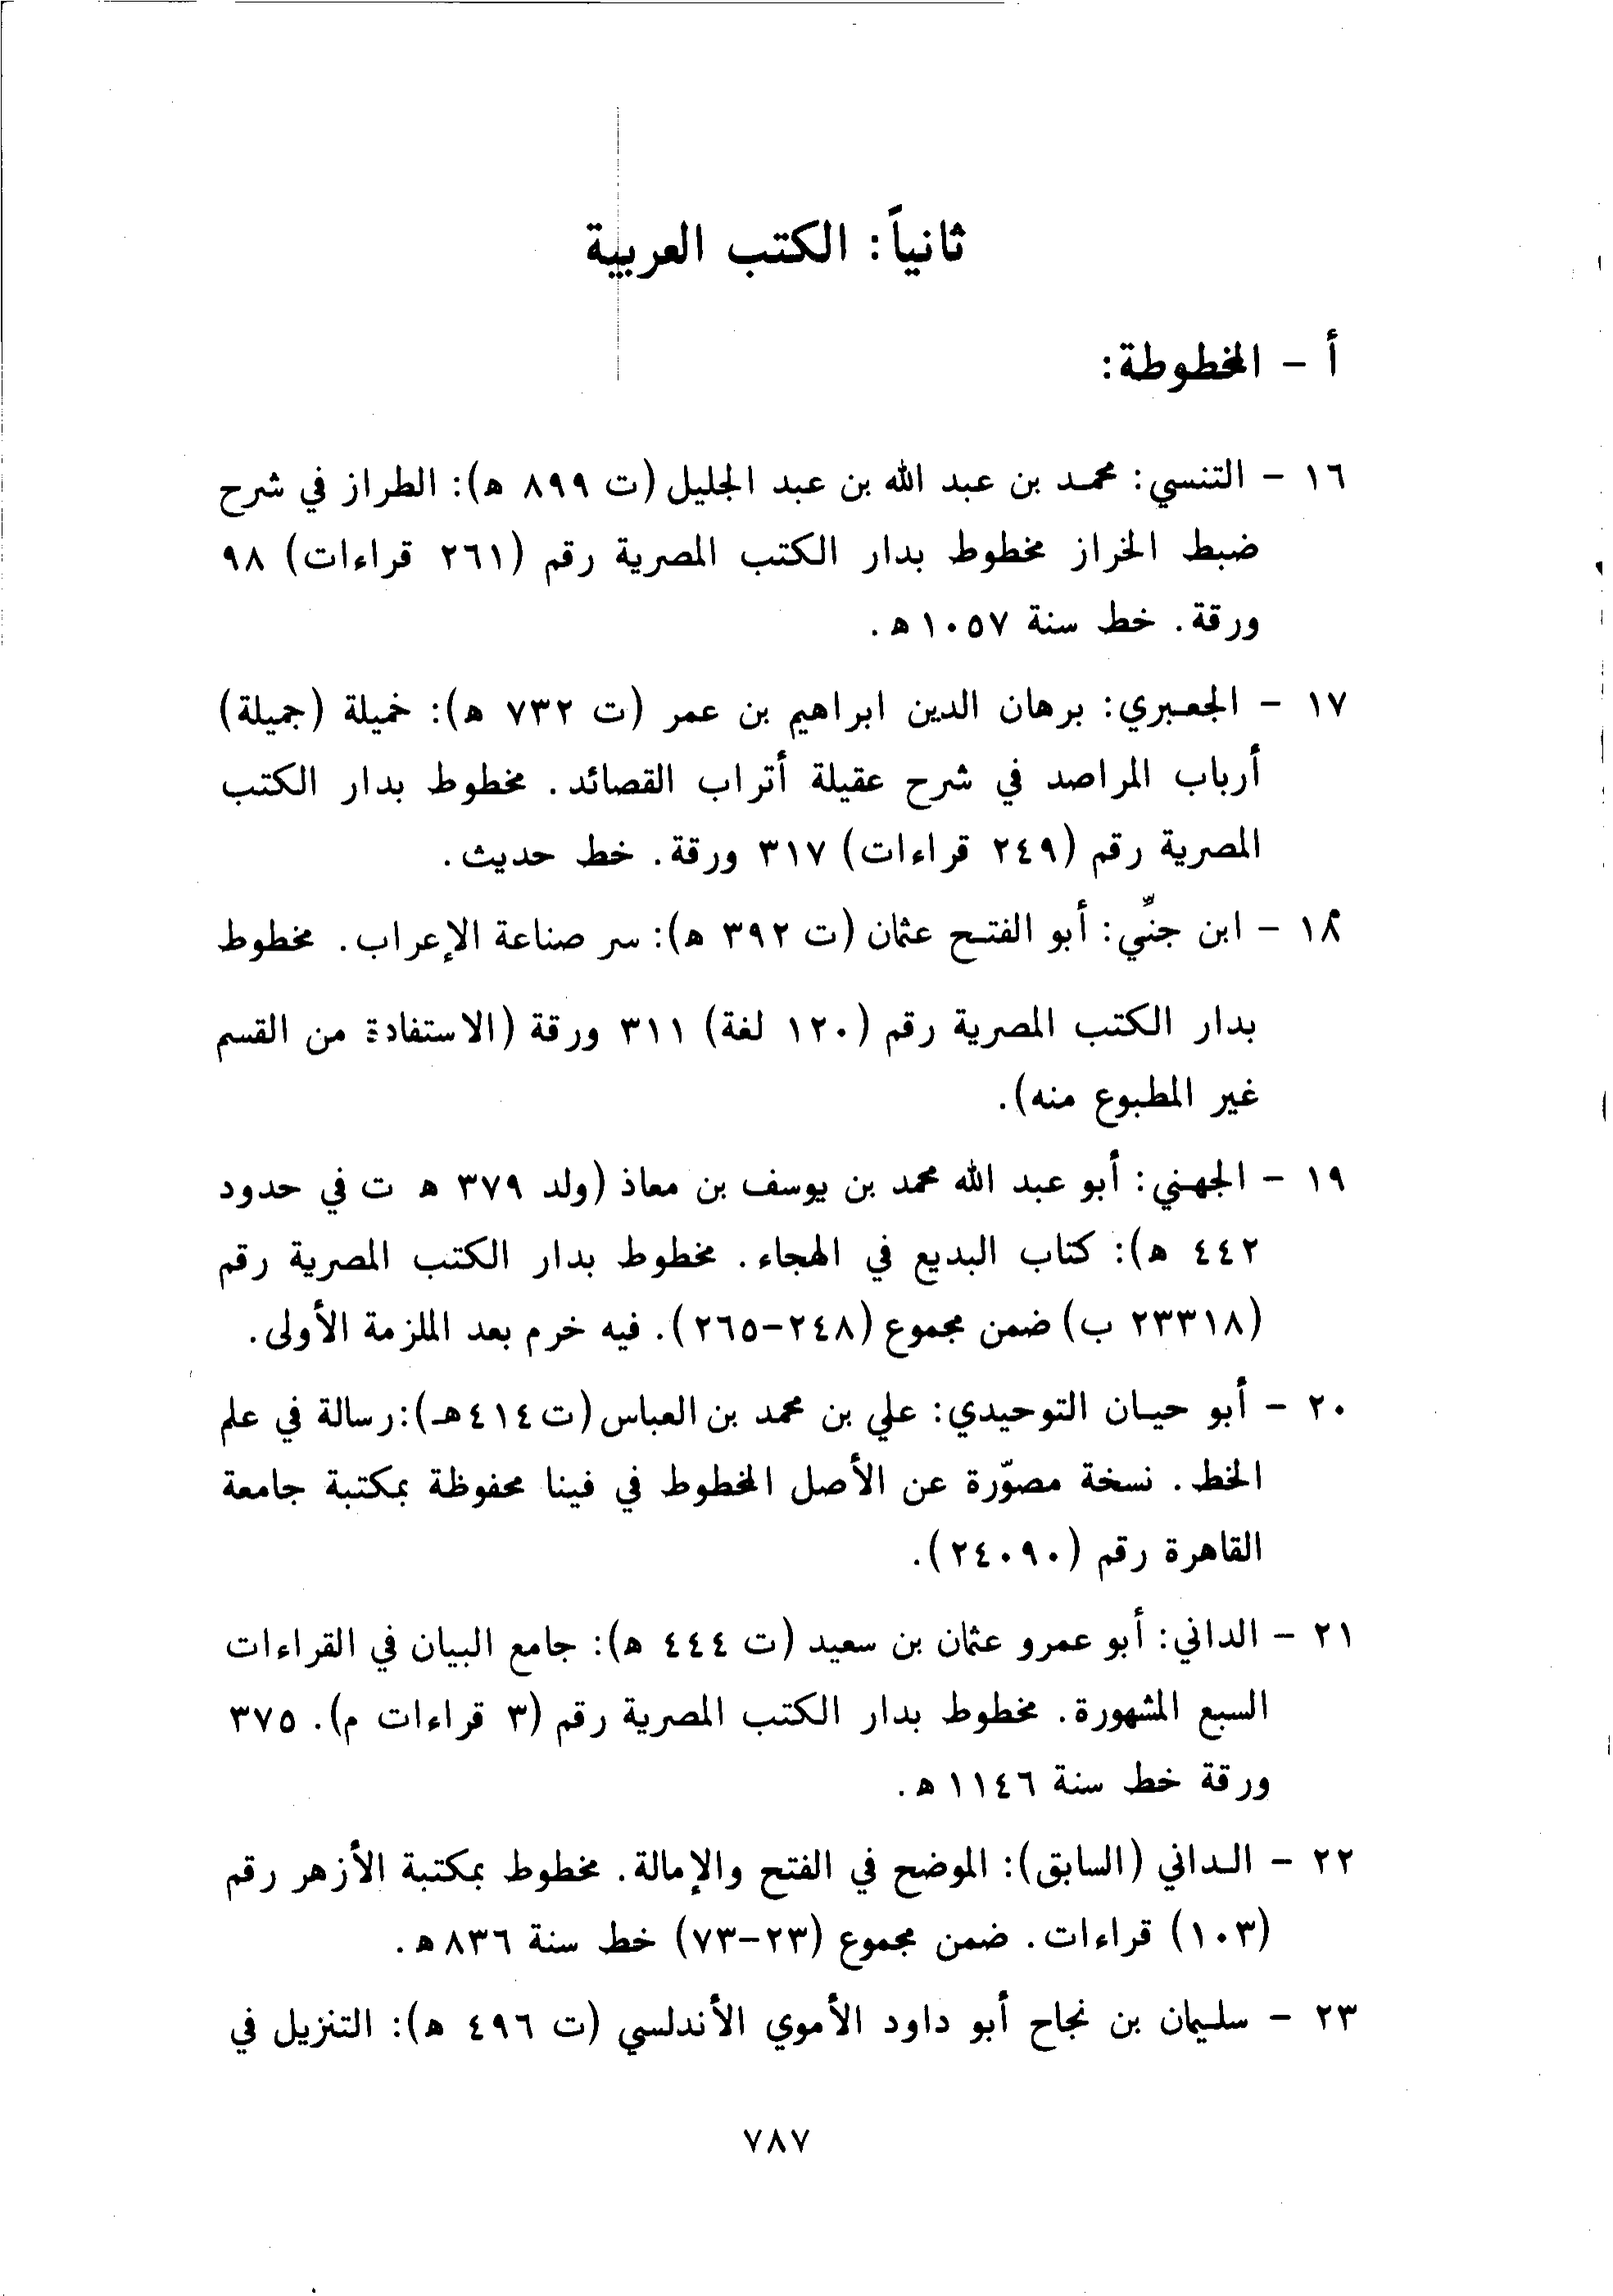 ثانياً: الكتب العربية
أ - المخطوطة:
١٦ - التنسي: محمد بن عبد الله بن عبد الجليل (ت ٨٩٩ ه): الطراز في شرح
ضبط الخراز مخطوط بدار الكتب المصرية رقم (٢٦١ قراءات) ٩٨
ورقة. خط سنة ١٠٥٧ه.
١٧ - الجعبري: برهان الدين ابراهيم بن عمر (ت ٧٣٢ ه): خميلة (جميلة)
أرباب المراصد في شرح عقيلة أتراب القصائد. مخطوط بدار الكتب
المصرية رقم (٢٤٩ قراءات) ٣١٧ ورقة. خط حديث.
١٨ - ابن جنّي: أبو الفتح عثمان (ت ٣٩٢ ه): سر صناعة الإعراب. مخطوط
بدار الكتب المصرية رقم (١٢٠ لغة) ٣١١ ورقة (الاستفادة من القسم
غير المطبوع منه).
١٩ - الجهني: أبو عبد الله محمد بن يوسف بن معاذ (ولد ٣٧٩ ه ت في حدود
٤٤٢ ه): كتاب البديع في الهجاء. مخطوط بدار الكتب المصرية رقم
(٢٣٣١٨ ب) ضمن مجموع (٢٤٨-٢٦٥). فيه خرم بعد الملزمة الأولى.
٢٠ - أبو حيان التوحيدي: علي بن محمد بن العباس (ت٤١٤هـ):رسالة في علم
الخط. نسخة مصوّرة عن الأصل المخطوط في فينا محفوظة بمكتبة جامعة
القاهرة رقم (٢٤٠٩٠).
٢١ - الداني: أبو عمرو عثمان بن سعيد (ت ٤٤٤ ه): جامع البيان في القراءات
السبع المشهورة. مخطوط بدار الكتب المصرية رقم (٣ قراءات م). ٣٧٥
ورقة خط سنة ١١٤٦ه.
٢٢ - الداني (السابق): الموضح في الفتح والإمالة. مخطوط بمكتبة الأزهر رقم
(١٠٣) قراءات. ضمن مجموع (٢٣-٧٣) خط سنة ٨٣٦ه.
٢٣ - سليمان بن نجاح أبو داود الأموي الأندلسي (ت ٤٩٦ ه): التنزيل في
٧٨٧